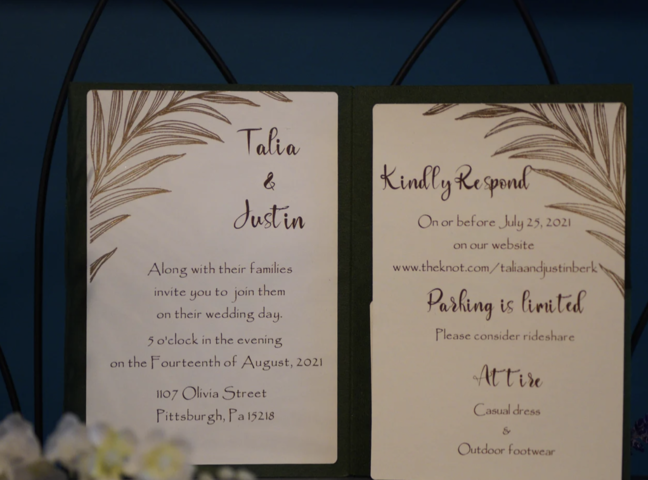 Talia
&
Justin
Along with their families
invite you to join them
on their wedding day.
5 o'clock in the evening
on the Fourteenth of August, 2021
1107 Olivia Street
Pittsburgh, Pa 15218
Kindly Respond
On or before July 25, 2021
on our website
www.theknot.com/taliaandjustinberk
Parking is limited
Please consider rideshare
Attire
Casual dress
&
Outdoor footwear